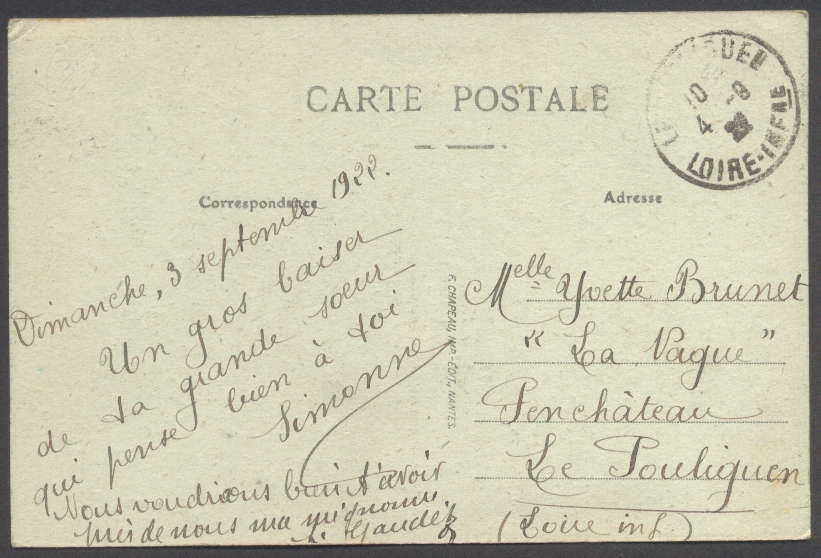 CARTE POSTALE
LE POULIGUEN
10 -
4 - 9
LOIRE-INFRE
Correspondance
Adresse
Dimanche, 3 septembre 1922.
Un gros baiser
de ta grande soeur
qui pense bien à toi
Simonne
Nous voudrions bien t'avoir
près de nous ma mignonne
Gaudé
F. CHAPEAU, IMP.-ÉDIT., NANTES.
Melle Yvette Brunet
" La Vague "
Penchâteau
Le Pouliguen
(Loire inf.)